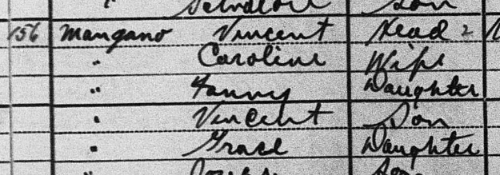 Salvatore Son
156 Mangano Vincent Head 2
" Caroline Wife
" Fanny Daughter
" Vincent Son
" Grace Daughter
" Joseph Son